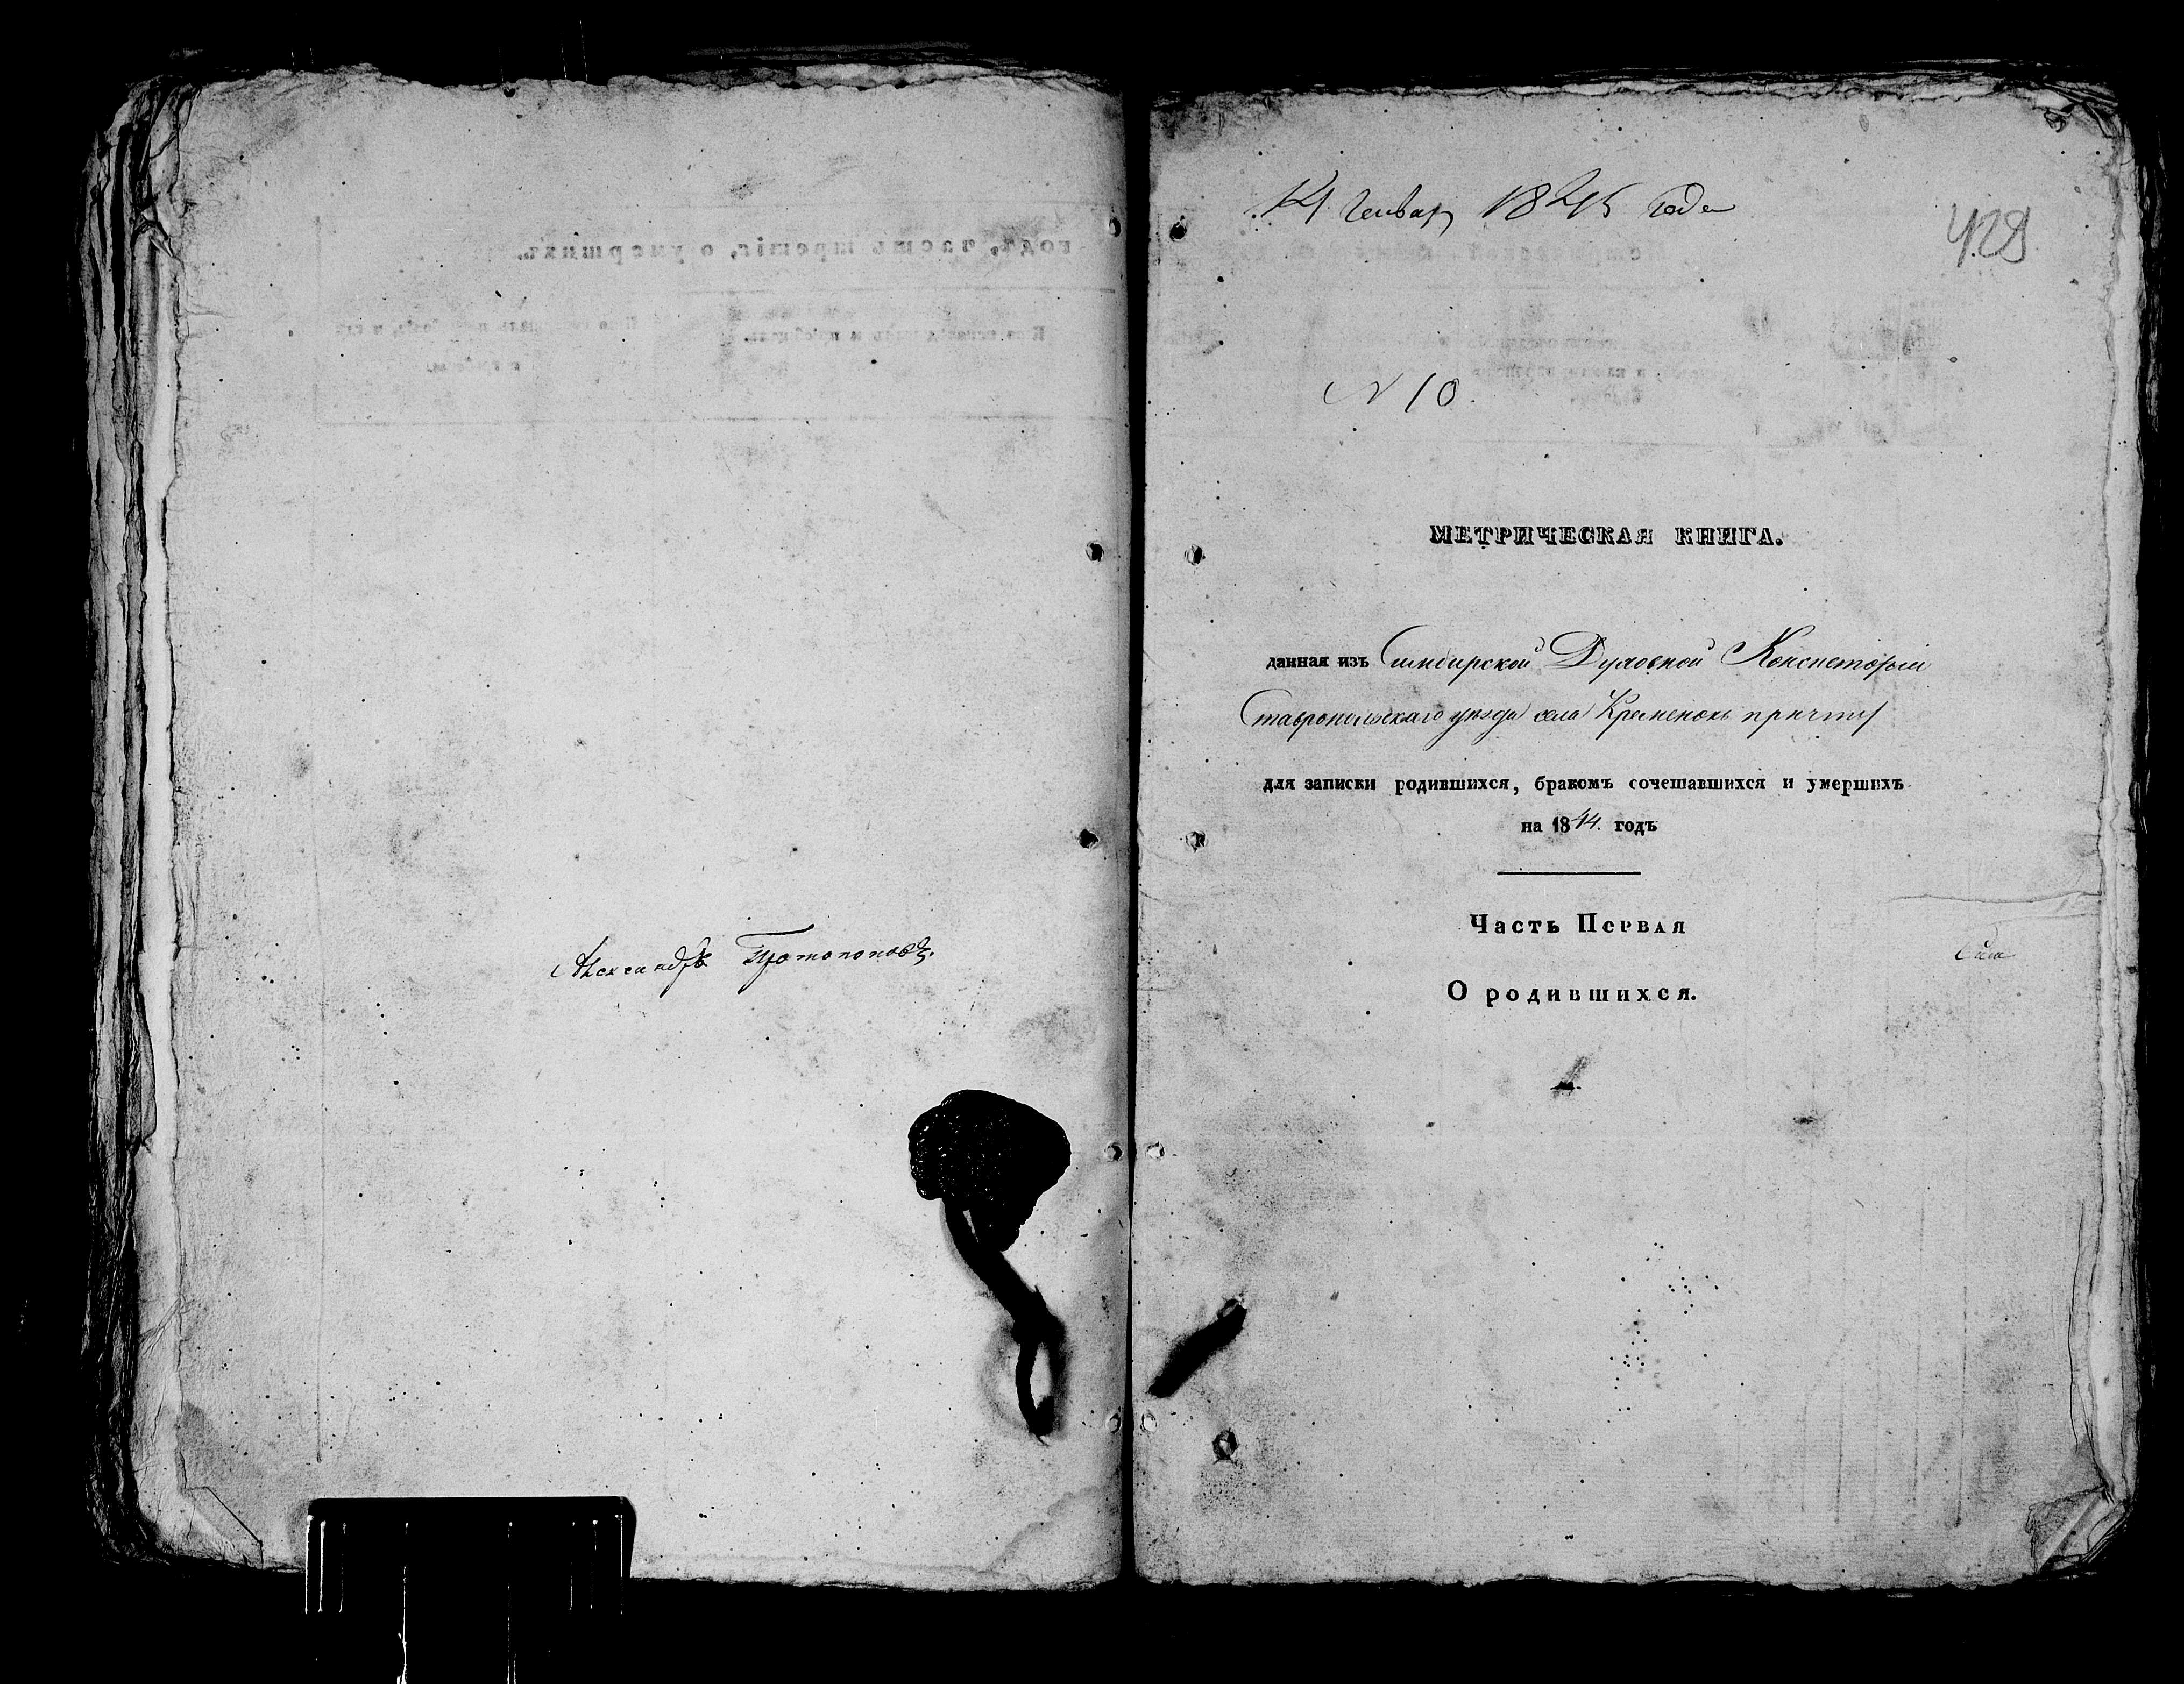 год, часть третія, о умершихъ.
Александръ Протопоповъ.
14 Генваря 1845 года
429
N 10.
МЕТРИЧЕСКАЯ КНИГА.
данная изъ Симбирской Духовной Консисторіи
Ставропольскаго уѣзда села Кременокъ причту
для записки родившихся, бракомъ сочетавшихся и умершихъ
на 1844. годъ
Часть Первая
О родившихся.